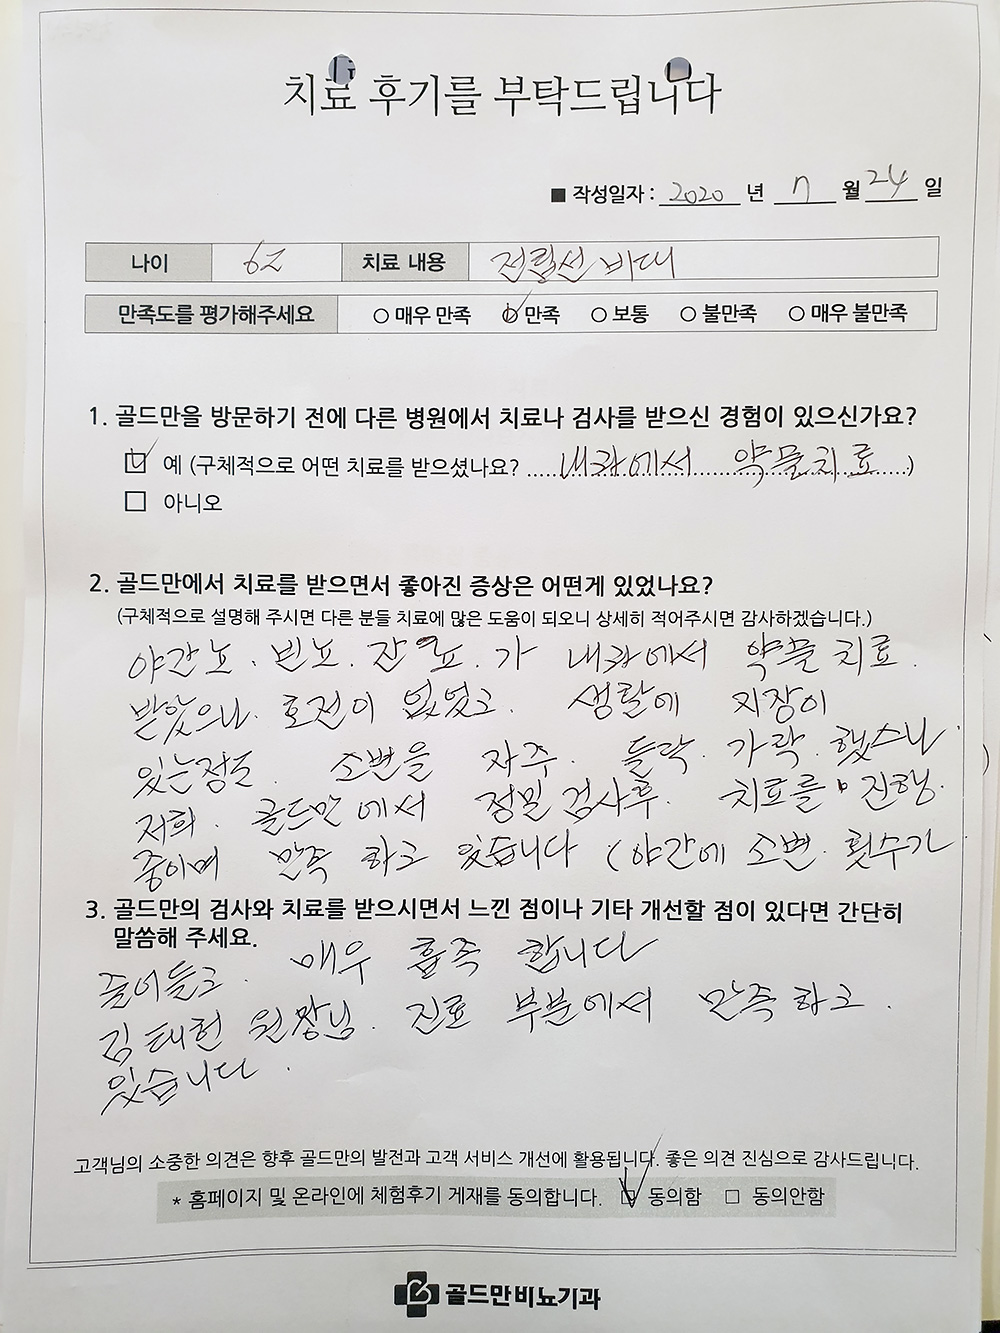 치료 후기를 부탁드립니다
■ 작성일자 : 2020 년 7 월 24 일
나이 62 치료 내용 전립선 비대
만족도를 평가해주세요 ○ 매우 만족 ○ 만족 ○ 보통 ○ 불만족 ○ 매우 불만족
1. 골드만을 방문하기 전에 다른 병원에서 치료나 검사를 받으신 경험이 있으신가요?
☑ 예 (구체적으로 어떤 치료를 받으셨나요? 내과에서 약물치료)
□ 아니오
2. 골드만에서 치료를 받으면서 좋아진 증상은 어떤게 있었나요?
(구체적으로 설명해 주시면 다른 분들 치료에 많은 도움이 되오니 상세히 적어주시면 감사하겠습니다.)
야간뇨. 빈뇨. 잔뇨. 가 내과에서 약물치료.
받았으나. 호전이 없었고. 생활에 지장이
있는정도. 소변을 자주. 들락. 가락. 했스나.
저희. 골드만에서 정밀검사후. 치료를 진행.
중이며 만족 하고 있습니다 (야간에 소변. 횟수가
3. 골드만의 검사와 치료를 받으시면서 느낀 점이나 기타 개선할 점이 있다면 간단히
말씀해 주세요.
줄어들고. 매우 흡족 합니다
김태헌 원장님. 진료 부분에서 만족하고.
있습니다.
고객님의 소중한 의견은 향후 골드만의 발전과 고객 서비스 개선에 활용됩니다. 좋은 의견 진심으로 감사드립니다.
* 홈페이지 및 온라인에 체험후기 게재를 동의합니다. ☑ 동의함 □ 동의안함
골드만비뇨기과